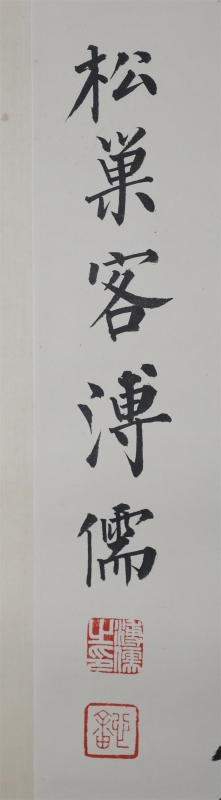 松巢客溥儒
溥儒之印